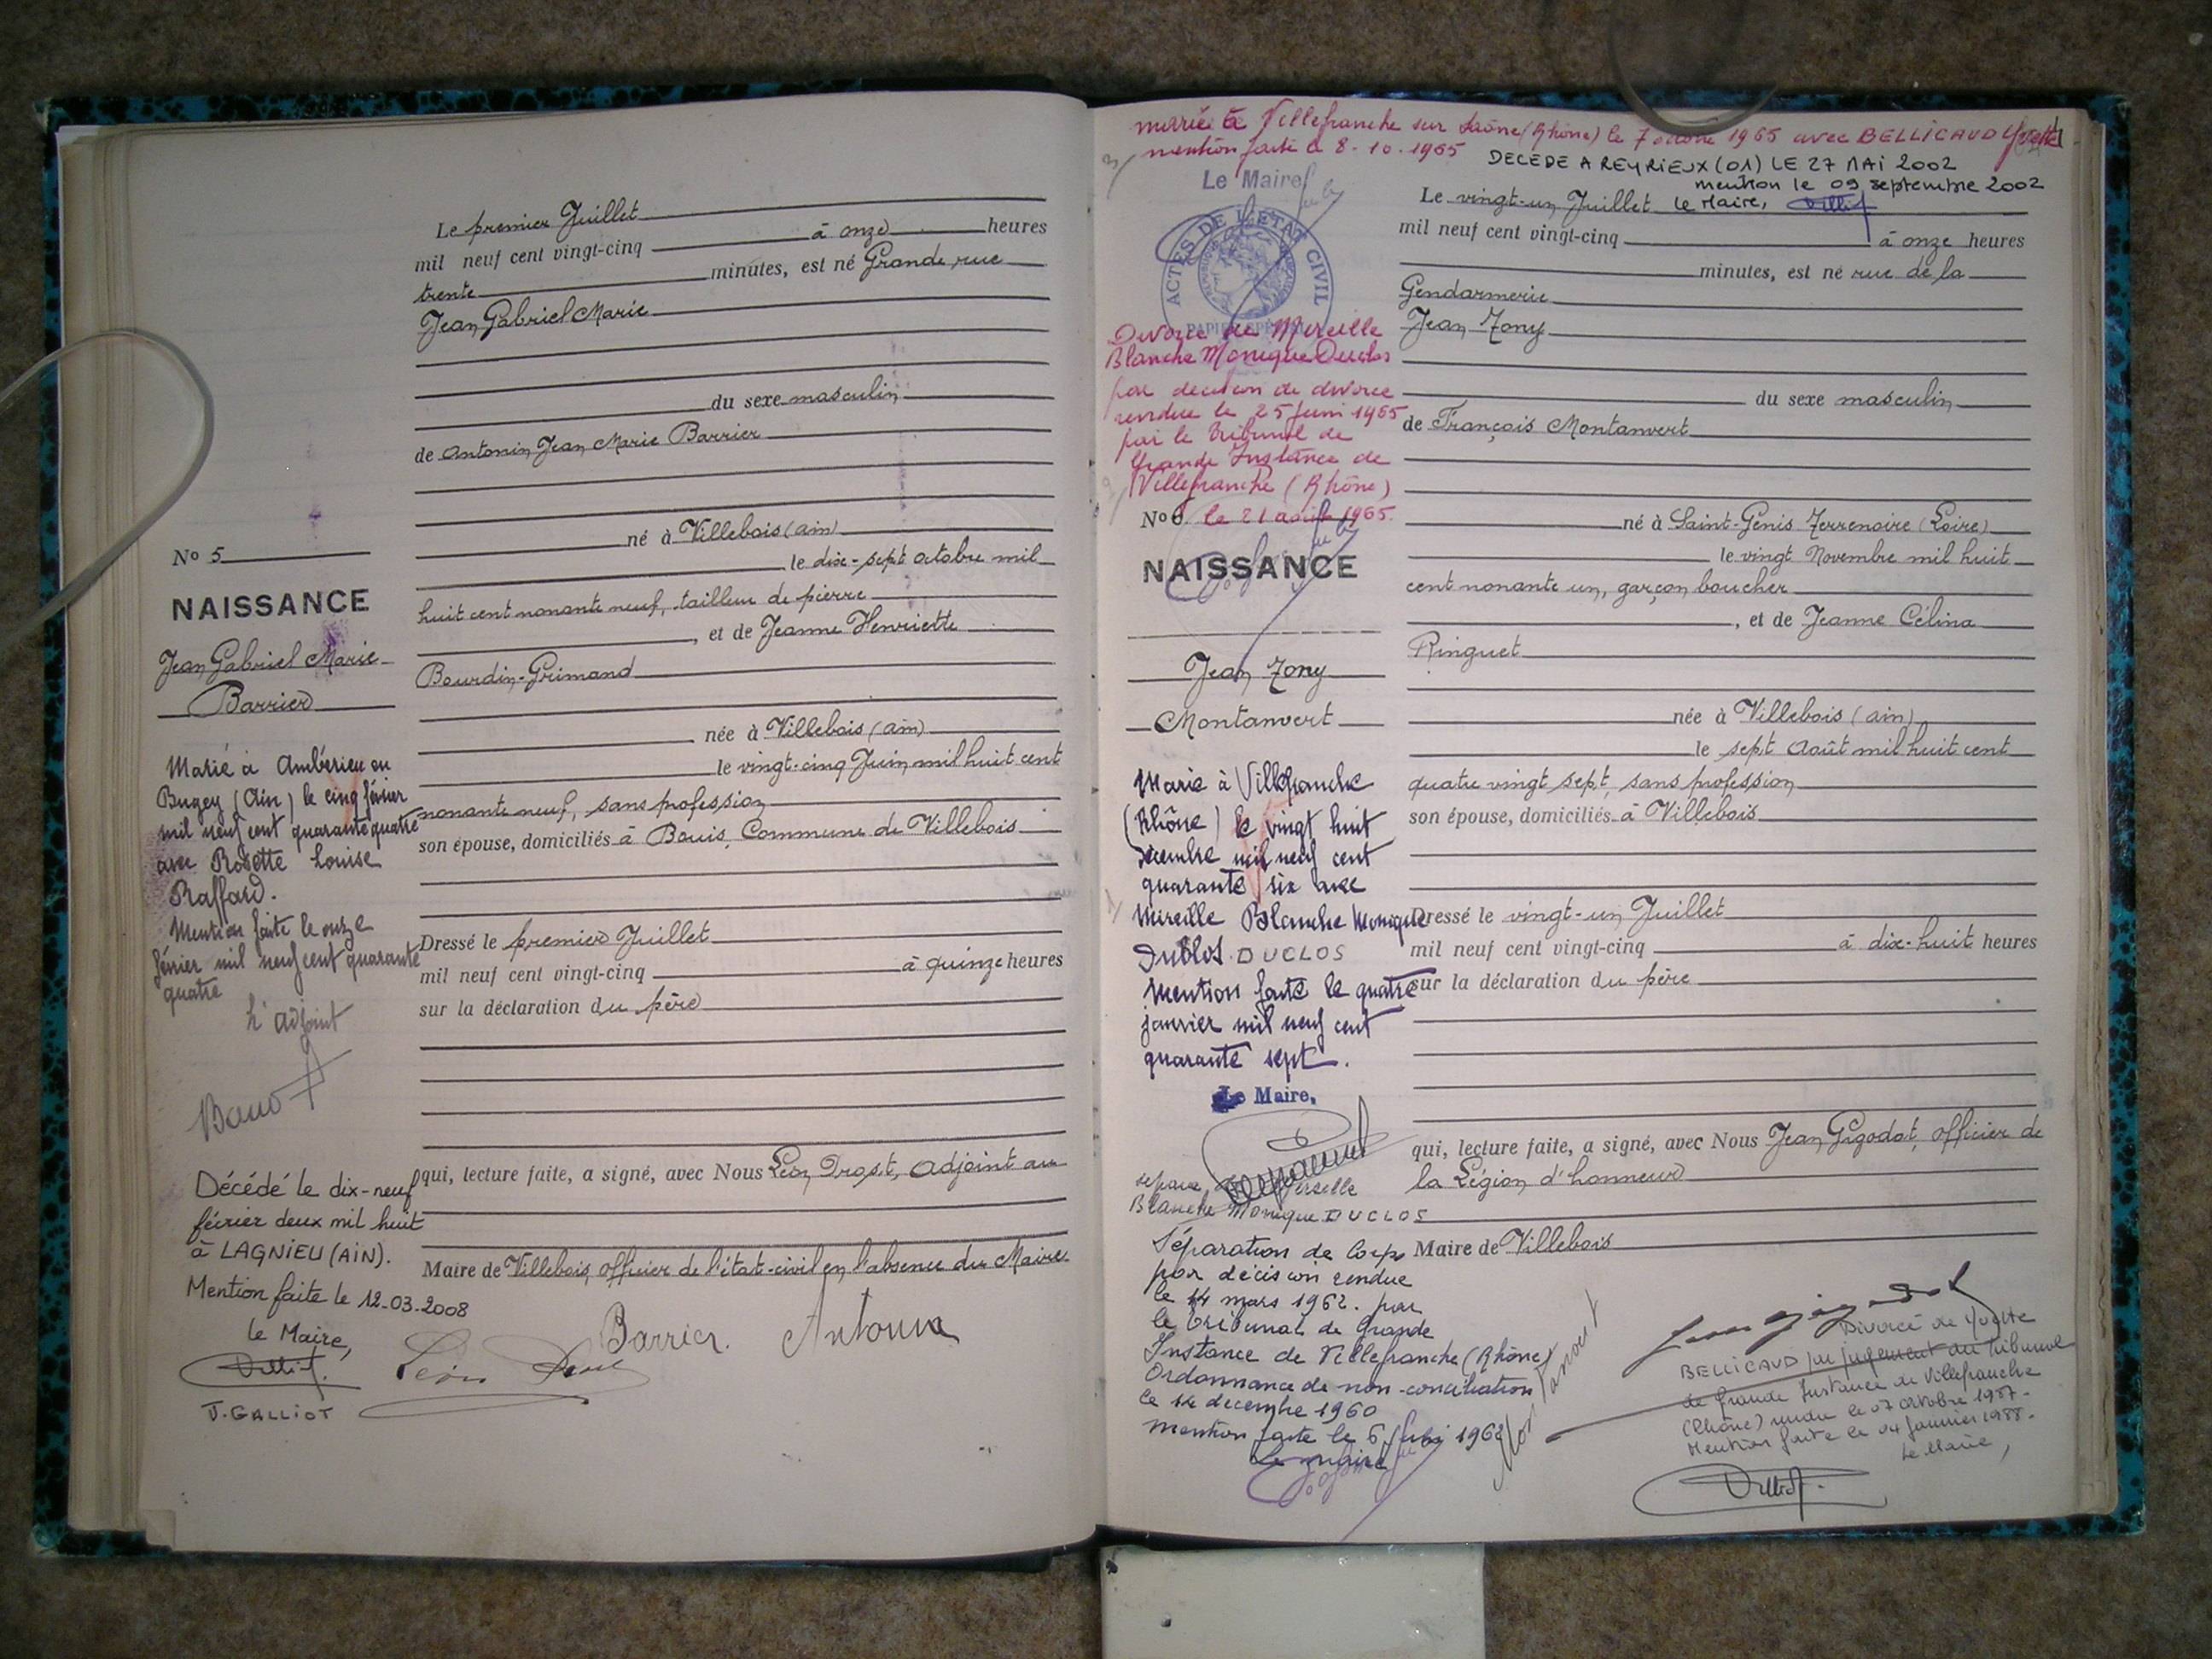 Le premier Juillet
mil neuf cent vingt-cinq à onze heures
trente minutes, est né Grande rue
Jean Gabriel Marie
du sexe masculin
de Antonin Jean Marie Barrier
né à Villebois (ain)
le dix-sept octobre mil
huit cent nonante neuf, tailleur de pierre
, et de Jeanne Henriette
Bourdin-Grimand
née à Villebois (ain)
le vingt-cinq Juin mil huit cent
nonante neuf, sans profession
son épouse, domiciliés à Bouis, Commune de Villebois
Dressé le premier Juillet
mil neuf cent vingt-cinq à quinze heures
sur la déclaration du père
qui, lecture faite, a signé, avec Nous Léon Drost, adjoint au
Maire de Villebois, officier de l'état-civil en l'absence du Maire
Barrier Antonin
Léon
No 5
NAISSANCE
Jean Gabriel Marie
Barrier
Marié à Ambérieu en
Bugey (Ain) le cinq février
mil neuf cent quarante quatre
avec Rosette Louise
Raffard.
Mention faite le onze
février mil neuf cent quarante
quatre
L'adjoint
Décédé le dix-neuf
février deux mil huit
à LAGNIEU (AIN).
Mention faite le 12-03-2008
le Maire,
J. GALLIOT
marié à Villefranche sur Saône (Rhône) le 7 octobre 1965 avec BELLICAUD Yvette
mention faite le 8-10-1965
DECEDE A REYRIEUX (01) LE 27 MAI 2002
mention le 09 septembre 2002
le Maire,
Le Maire
ACTES DE L'ETAT CIVIL
PAPIER SPÉCIAL
Divorcé de Mireille
Blanche Monique Duclos
par décision de divorce
rendue le 25 juin 1965
par le Tribunal de
Grande Instance de
Villefranche (Rhône)
le 21 août 1965
No 6
NAISSANCE
Jean Tony
Montanvert
Marié à Villefranche
(Rhône) le vingt huit
décembre mil neuf cent
quarante six avec
Mireille Blanche Monique
Dublos DUCLOS
Mention faite le quatre
janvier mil neuf cent
quarante sept.
Le Maire,
Blanche Monique DUCLOS
Séparation de Corps
par décision rendue
le 14 mars 1962. par
le Tribunal de Grande
Instance de Villefranche (Rhône)
Ordonnance de non-conciliation
le 14 décembre 1960
mention faite le 6 1962
Le Maire
Le vingt-un Juillet
mil neuf cent vingt-cinq à onze heures
minutes, est né rue de la
Gendarmerie
Jean Tony
du sexe masculin
de François Montanvert
né à Saint-Genis Terrenoire (Loire)
le vingt Novembre mil huit
cent nonante un, garçon boucher
, et de Jeanne Célina
Ringuet
née à Villebois (ain)
le sept Août mil huit cent
quatre vingt sept, sans profession
son épouse, domiciliés à Villebois
Dressé le vingt-un Juillet
mil neuf cent vingt-cinq à dix-huit heures
sur la déclaration du père
qui, lecture faite, a signé, avec Nous Jean Gigodot, officier de
la Légion d'honneur
Maire de Villebois
Jean Gigodot
Montanvert
Divorcé de Yvette
BELLICAUD par jugement du Tribunal
de Grande Instance de Villefranche
(Rhône) rendu le 07 octobre 1987.
Mention faite le 04 janvier 1988.
Le Maire,